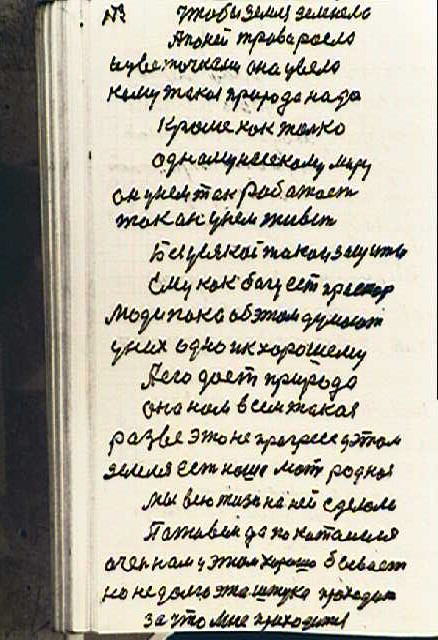 № чтобы земля зелнела
Апоней травараела
ицветочками онацвела
кому такая природа надо
Кроме как толко
одномучесскому миру
он унем так работает
так ан унем живет
Безусякой такой защиты
Ему как богу ест простор
Люди пока об этом думают
у них одно ик хорошему
Аего дает природа
она нам всем такая
разве это не прогресс дэтом
земля ест наша мат родная
мы всю жизн на ней сделали
Паживем да похитаимся
очен нам у этом хорошо бывает
но не долго эта штука проходит
за что мне приходится